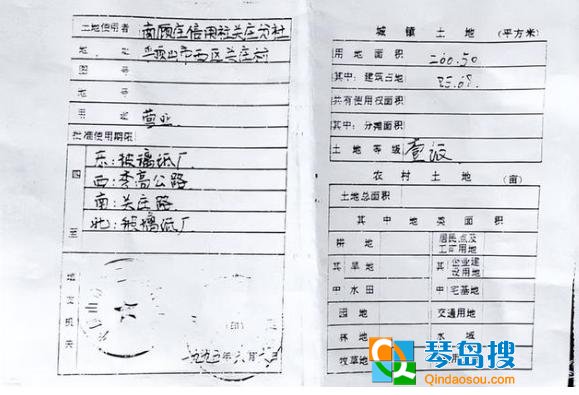 土地使用者 南顾庄信用社关庄分社
地 址 平顶山市西区关庄村
图 号
地 号
用 途 营业
批准使用期限
四至
东:玻璃纸厂
西:李高公路
南:关庄路
北:玻璃纸厂
填发机关
(印)
一九九五年六月 日
城 镇 土 地 (平方米)
用 地 面 积 260.50
其中: 建筑占地
共有使用权面积
其中: 分摊面积
土 地 等 级 壹级
农 村 土 地 (亩)
土地总面积
其 中 地 类 面 积
耕 地 居民点及工矿用地
其 旱 地 其 企业建设用地
中 水 田 中 宅基地
园 地 交通用地
林 地 水 域
牧草地
琴岛搜
Qindaosou.com